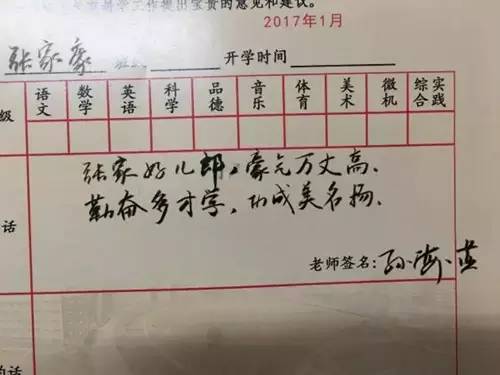 学工作提出宝贵的意见和建议。
2017年1月
张家豪 开学时间
级 语文 数学 英语 科学 品德 音乐 体育 美术 微机 综合实践
张家好儿郎,豪气万丈高、
勤奋多才学,功成美名扬。
话
老师签名:孙海燕
的话